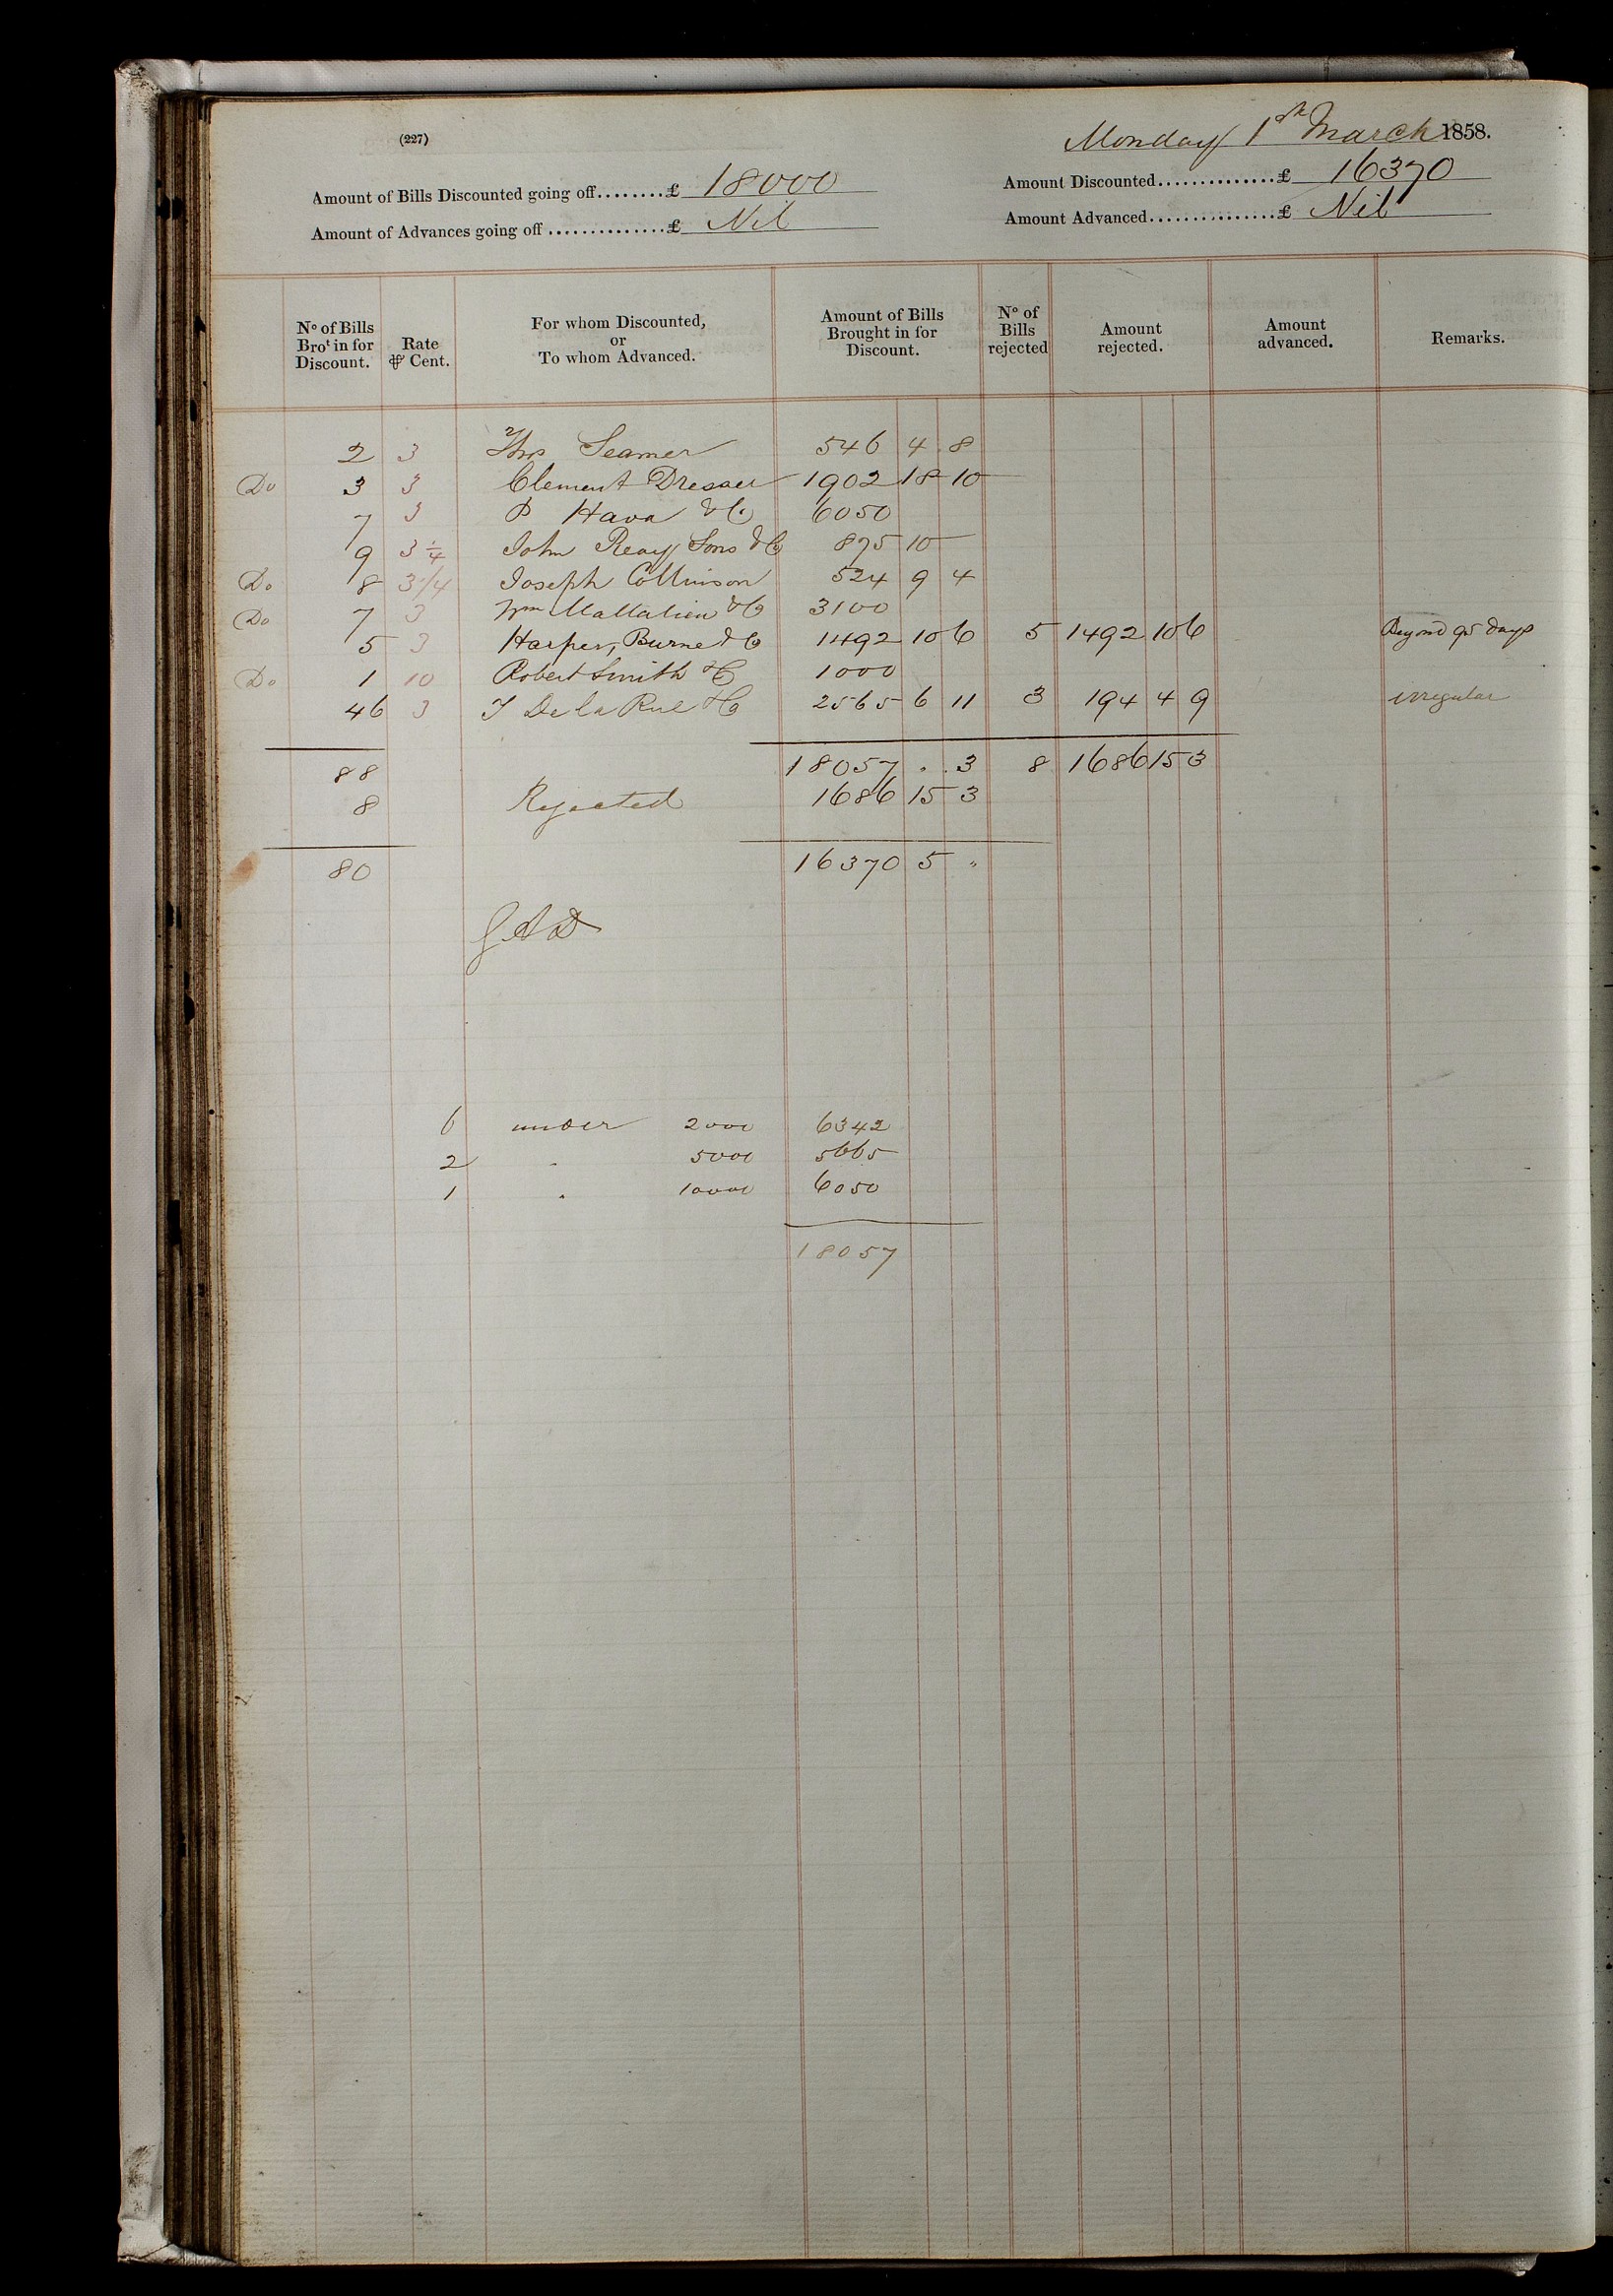 (227)
Monday 1st March 1858.
Amount of Bills Discounted going off........£ 18000
Amount Discounted..............£ 16370
Amount of Advances going off..............£ Nil
Amount Advanced...............£ Nil
No of Bills Brot in for Discount. Rate ⅌ Cent. For whom Discounted, or To whom Advanced. Amount of Bills Brought in for Discount. No of Bills rejected Amount rejected. Amount advanced. Remarks.
2 3 Thos Seamer 546 4 8
Do 3 3 Clement Dresser 1902 18 10
7 3 P Hava & Co 6050
9 3 1/4 John Reay Sons & Co 875 10
Do 8 3 1/4 Joseph Collinson 524 9 4
Do 7 3 Wm Mallalieu & Co 3100
5 3 Harper, Burne & Co 1492 10 6 5 1492 10 6 Beyond 95 days
Do 1 10 Robert Smith & Co 1000
46 3 T De la Rue & Co 2565 6 11 3 194 4 9 irregular
88 18057 . . 3 8 1686 15 3
8 Rejected 1686 15 3
80 16370 5 "
6 under 2000 6342
2 . 5000 5665
1 . 10000 6050
18057